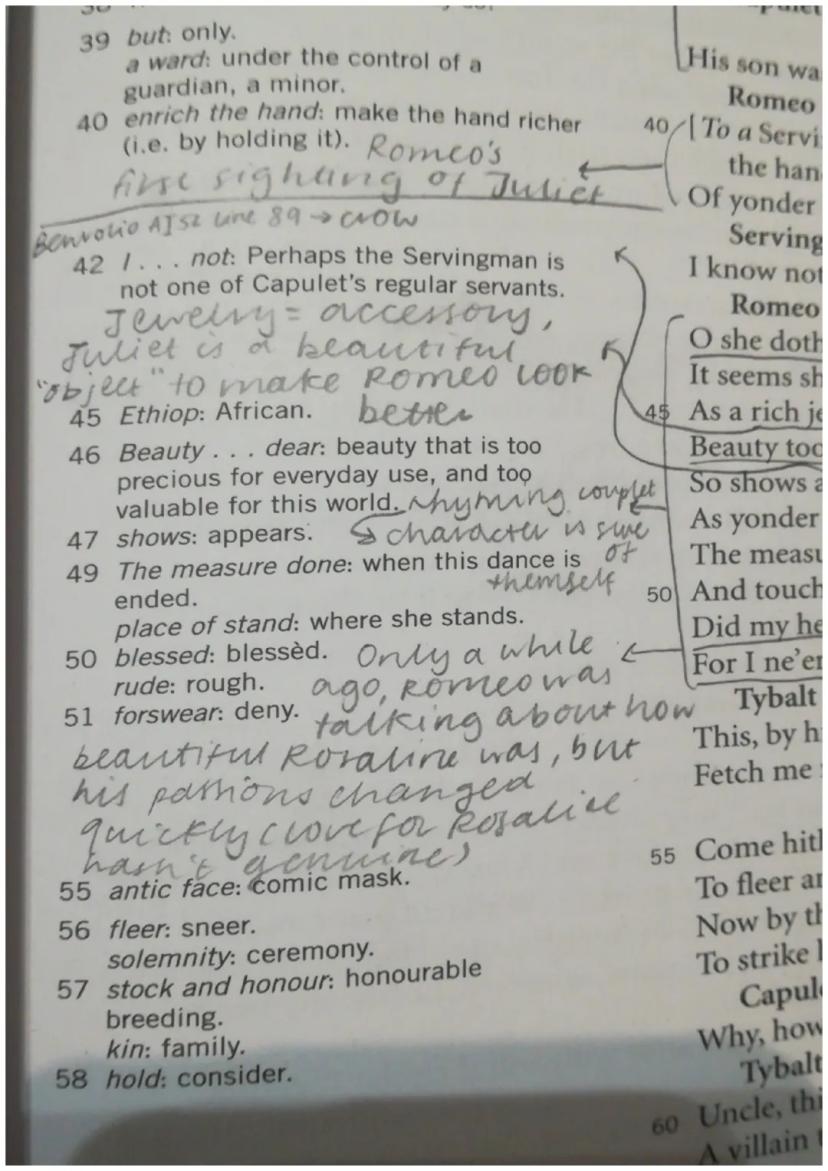 39 but: only.
a ward: under the control of a
guardian, a minor.
40 enrich the hand: make the hand richer
(i.e. by holding it). Romeo's
first sighting of Juliet
Benvolio A1S2 line 89 → crow
42 I . . . not: Perhaps the Servingman is
not one of Capulet's regular servants.
Jewelry = accessory,
Juliet is a beautiful
"object" to make Romeo look
45 Ethiop: African. better
46 Beauty . . . dear: beauty that is too
precious for everyday use, and too
valuable for this world. rhyming couplet
47 shows: appears. ↳ character is sure
49 The measure done: when this dance is of
ended. themself
place of stand: where she stands.
50 blessed: blessèd. Only a while
rude: rough. ago, Romeo was
51 forswear: deny. talking about how
beautiful Rosaline was, but
his passions changed
quickly (love for Rosaline
hasn't genuine)
55 antic face: comic mask.
56 fleer: sneer.
solemnity: ceremony.
57 stock and honour: honourable
breeding.
kin: family.
58 hold: consider.
His son wa
Romeo
40 [To a Servi
the han
Of yonder
Serving
I know not
Romeo
O she doth
It seems sh
45 As a rich je
Beauty too
So shows a
As yonder
The measu
50 And touch
Did my he
For I ne'er
Tybalt
This, by h
Fetch me
55 Come hith
To fleer an
Now by th
To strike
Capul
Why, how
Tybalt
60 Uncle, thi
A villain